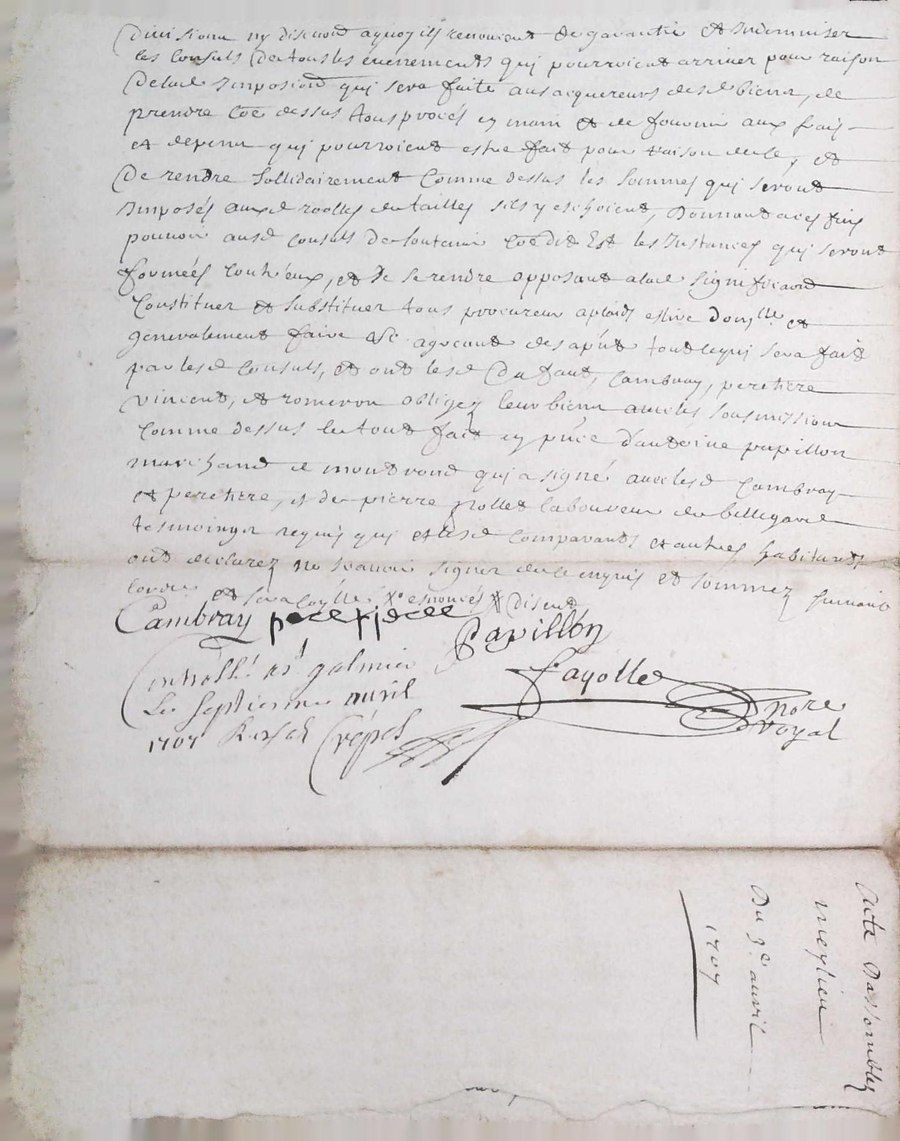 division ny discution aquoy ils renoncent de garantir et Indemniser
les Consuls De tous les évenements qui pourroient arriver pour raison
Delad Imposion qui sera faite aus acquereurs desd biens, de
prendre Coe dessus tous procés en main et de fournir aux frais
et depens qui pourroient estre fait pour raison de ce, et
De rendre sollidairement Comme dessus les sommes qui seront
Imposés auxd roolles des tailles sils y eschoient, Donnant aces fins
pouvoir ausd Consuls de soutenir Coe dit Est les Instances qui seront
formées contreux, et de se rendre opposant alad signifficaon
Constituer et substituer tous procureur aplaids eslire Domylle et
generalement faire &c. agreant des apnt tout ce qui sera fait
par lesd Consuls, et ont lesd Du faut, Cambray, peretiere
vincent, et romeron obligez leur biens avec les sousmissions
Comme dessus le tout fait en pnce d'antoine papillon
marchand de montrond qui a signé avec lesd Cambray
et peretiere, et de pierre nollet laboureur de bellegarde
tesmoings requis qui et lesd Comparants et autres habitants
ont declarez ne scavoir signer de ce enquis et sommez suivant
lordce
Cambray peretiere papillon
Controllé a st galmier
Le septiesme avril
1707 Crépet
fayolle nore
royal
Acte Dassemblée
meylieu
Du 3e avril
1707